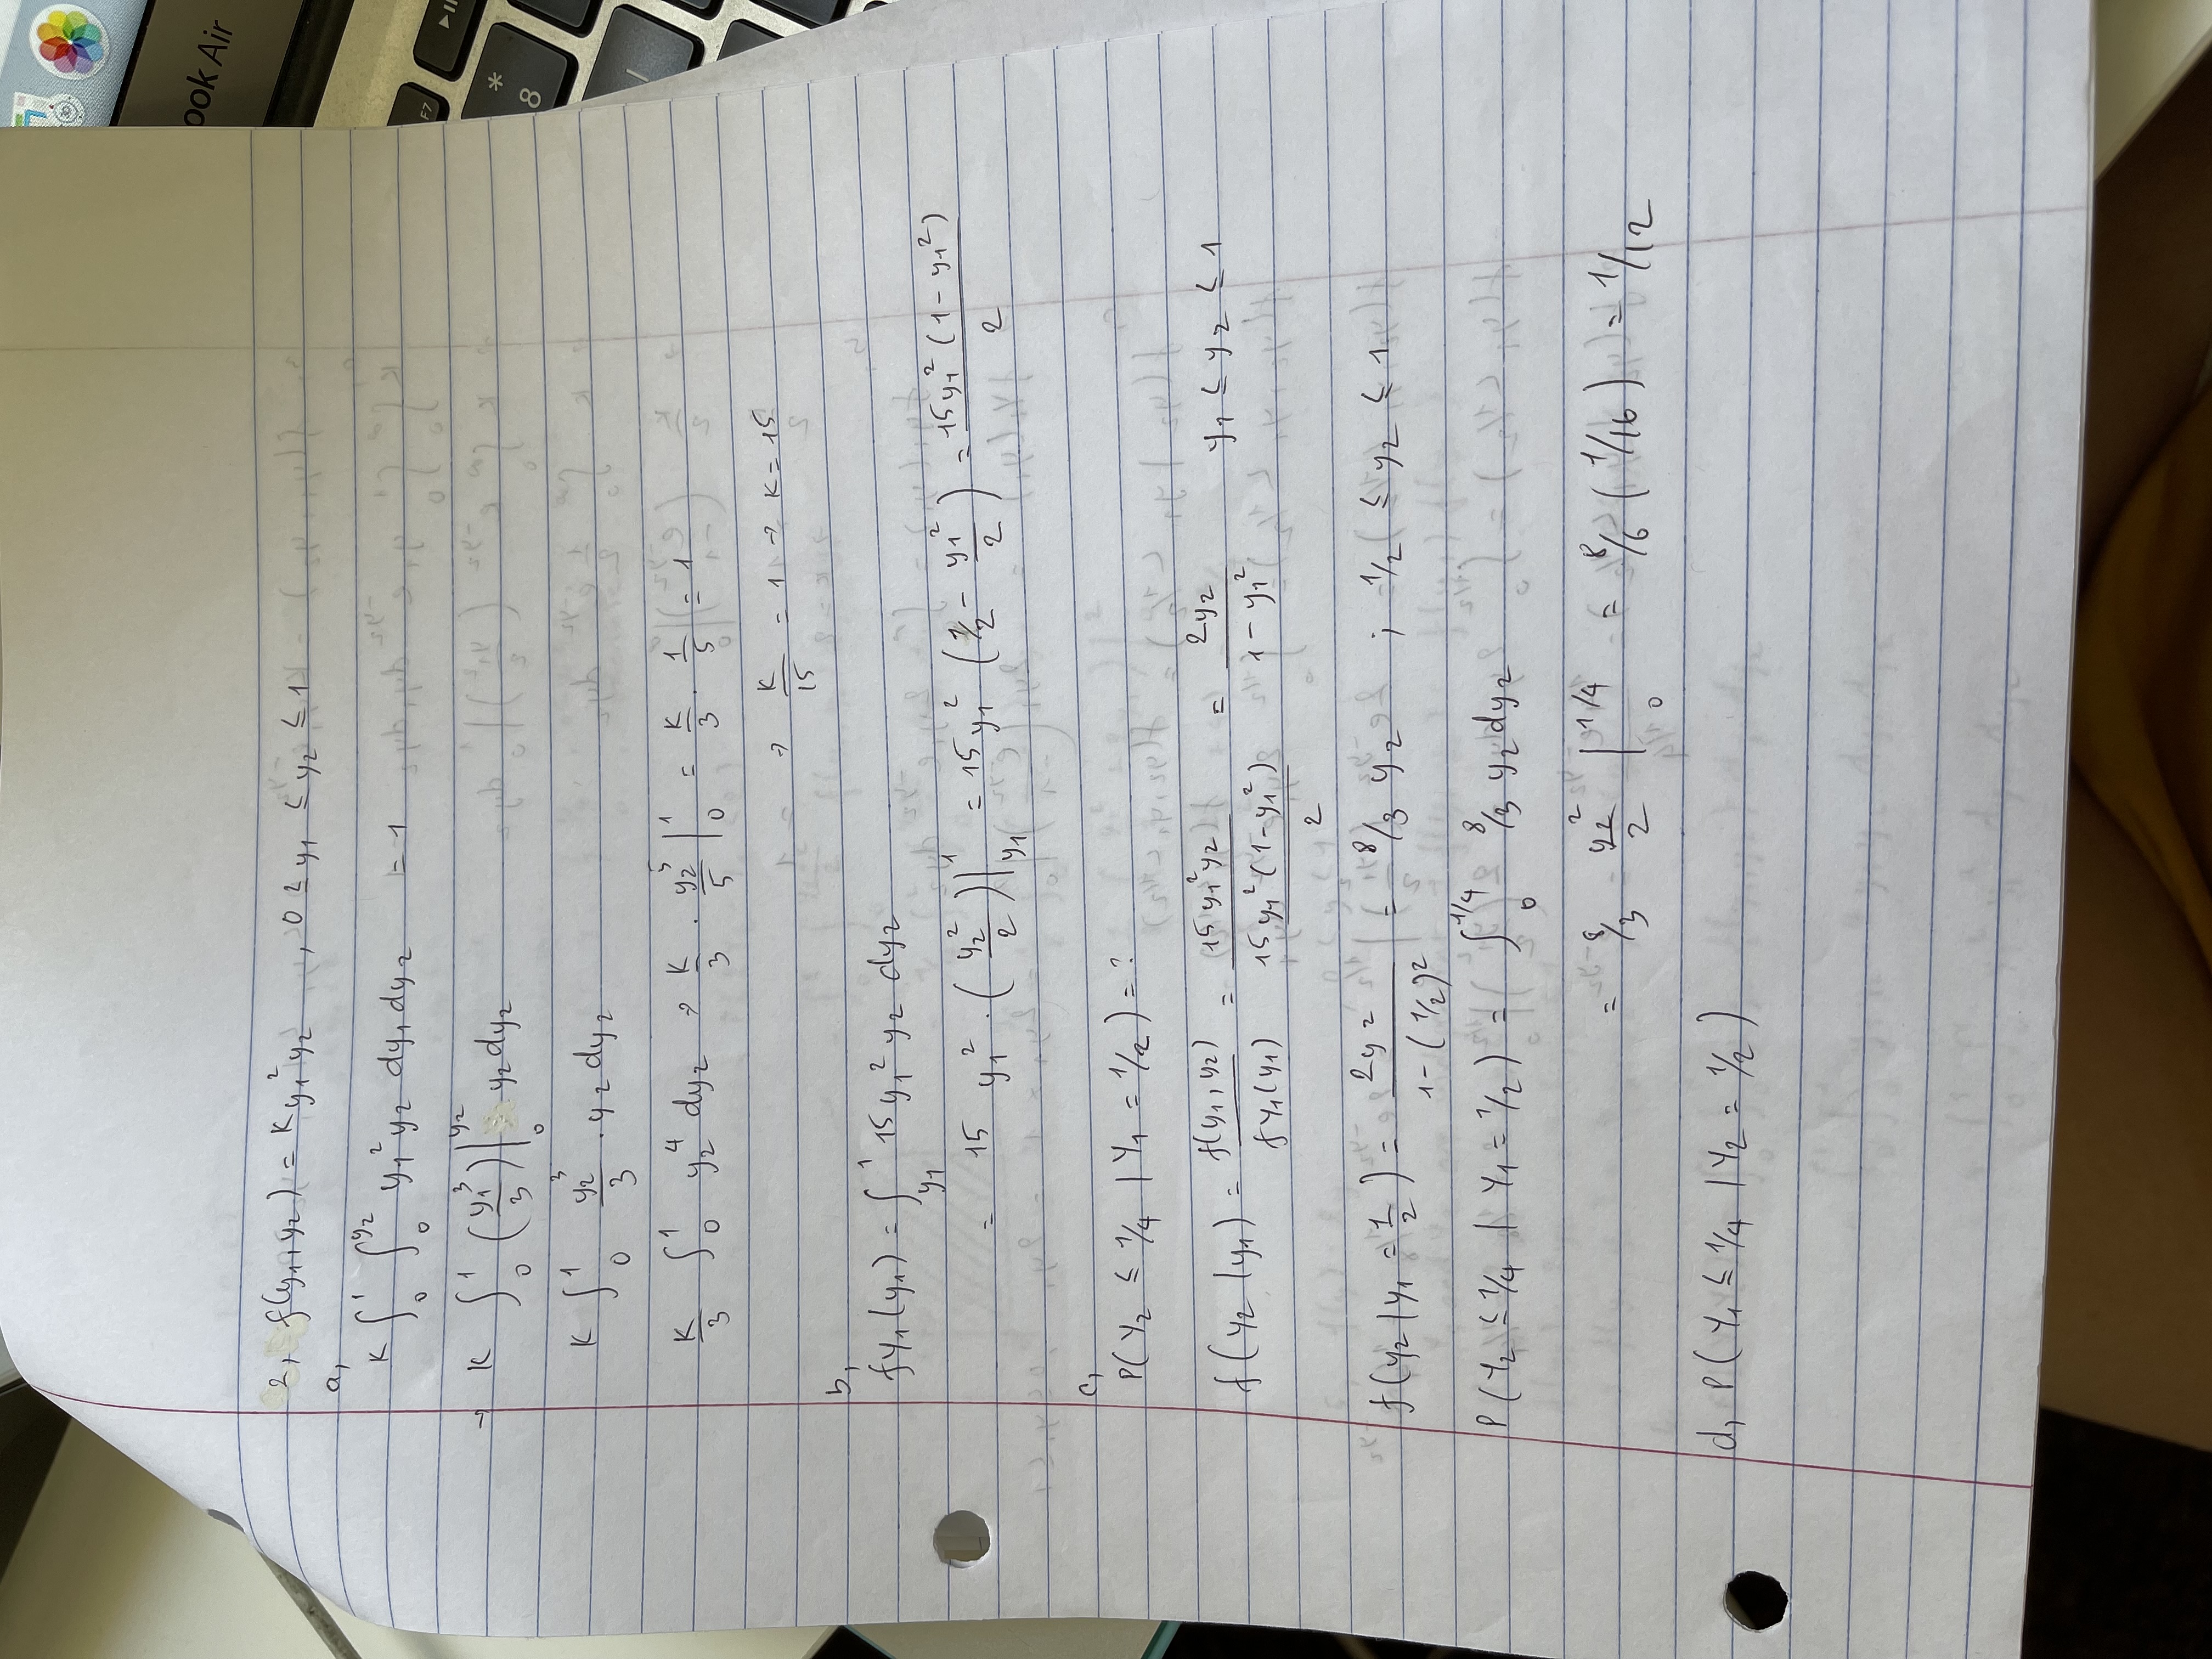 2, f(y₁,y₂) = K y₁² y₂ , 0 ≤ y₁ ≤ y₂ ≤ 1
a,
K ∫₀¹ ∫₀^y₂ y₁² y₂ dy₁ dy₂ = 1
→ K ∫₀¹ (y₁³/3)|₀^y₂ y₂ dy₂
K ∫₀¹ y₂³/3 · y₂ dy₂
K/3 ∫₀¹ y₂⁴ dy₂ → K/3 · y₂⁵/5 |₀¹ = K/3 · 1/5 = 1
→ K/15 = 1 → K = 15
b,
fy₁(y₁) = ∫_y₁¹ 15 y₁² y₂ dy₂
= 15 y₁² · (y₂²/2)|_y₁¹ = 15 y₁² (1/2 - y₁²/2) = 15y₁²(1-y₁²)/2
c,
P(Y₂ ≤ 1/4 | Y₁ = 1/2) = ?
f(y₂|y₁) = f(y₁,y₂)/fy₁(y₁) = 15y₁²y₂/(15y₁²(1-y₁²)/2) = 2y₂/(1-y₁²) y₁ ≤ y₂ ≤ 1
f(y₂|y₁=1/2) = 2y₂/(1-(1/2)²) = 8/3 y₂ ; 1/2 ≤ y₂ ≤ 1
P(Y₂ ≤ 1/4 | Y₁ = 1/2) = ∫₀^1/4 8/3 y₂ dy₂
= 8/3 y₂²/2 |₀^1/4 = 8/6 (1/16) = 1/12
d, P(Y₁ ≤ 1/4 | Y₂ = 1/2)
ook Air
F7
*
8